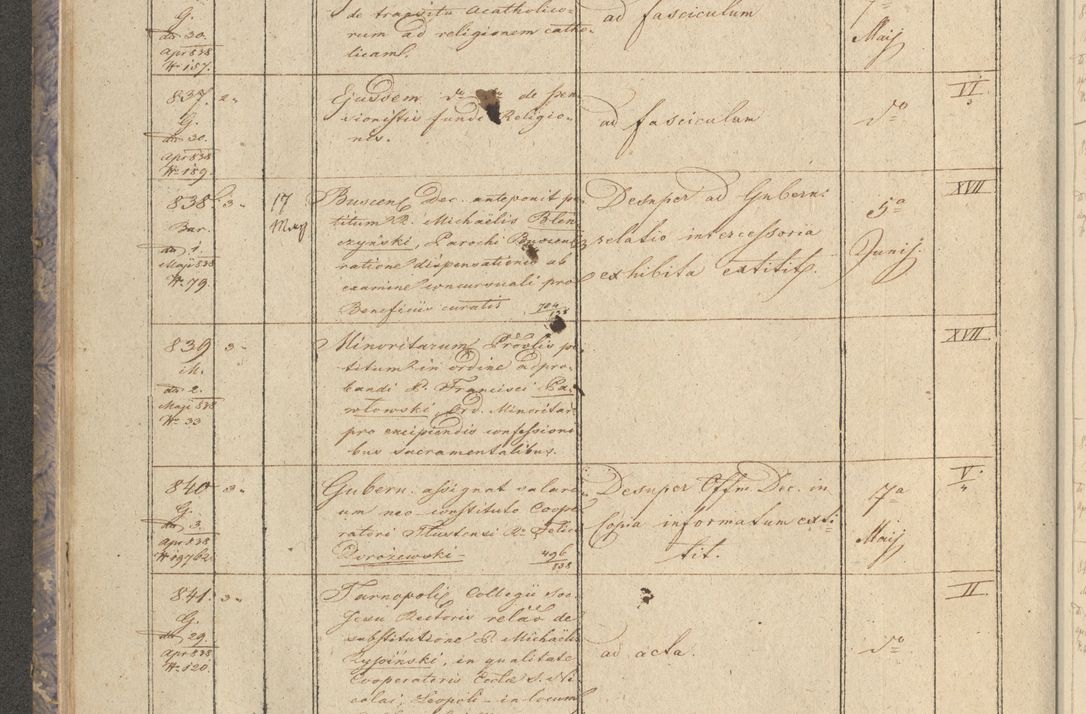 G.
dto 30.
Apr 838
N. 157.
de transitu acatholico-
rum ad religionem catho-
licam.
ad fasciculum
7a
Maij
837. 2„
G.
dto 30.
Apr 838
N. 159.
Ejusdem dto dto de pen-
sionistis fundi Religio-
nis.
ad fasciculum
do
VI
838. 3„
Bar.
dto 1.
Maji 838
N. 79.
17
May
Buscens Dec. anteponit pe-
titum R. Michaëlis Blon-
czyński, Parochi
ratione dispensationis ab
examine concursuali pro
Beneficiis curatis
704
838
Desuper ad Gubern:
relatio intercessoria
exhibita extitit.
5a
Junij
XVII
839 3„
M.
dto 2.
Maji 838
N. 33
Minoritarum Provlis pe-
titum in ordine adpro-
bandi P. Francisci Pa-
wlowski, Ord. Minoritar
pro excipiendis confessioni
bus sacramentalibus.
XVII.
840 3„
G.
dto 3.
Apr 838
N 19762
Gubern. assignat salari-
um neo-constituto Coope
ratori Tlustensi R. Felici
Dorożewski -
496
838
Desuper Offm Dec. in
Copia informatum exti-
tit.
7a
Maij
V.
4
841. 3„
G.
dto 29.
Apr 838
N. 520.
Tarnopolis Collegii Soc.
Jesu Rectoris relao de
substitutione P. Michaëli
in qualitate
Cooperatoris Ecclae S. Ni
colai, Leopoli - in locum
ad acta.
do
II